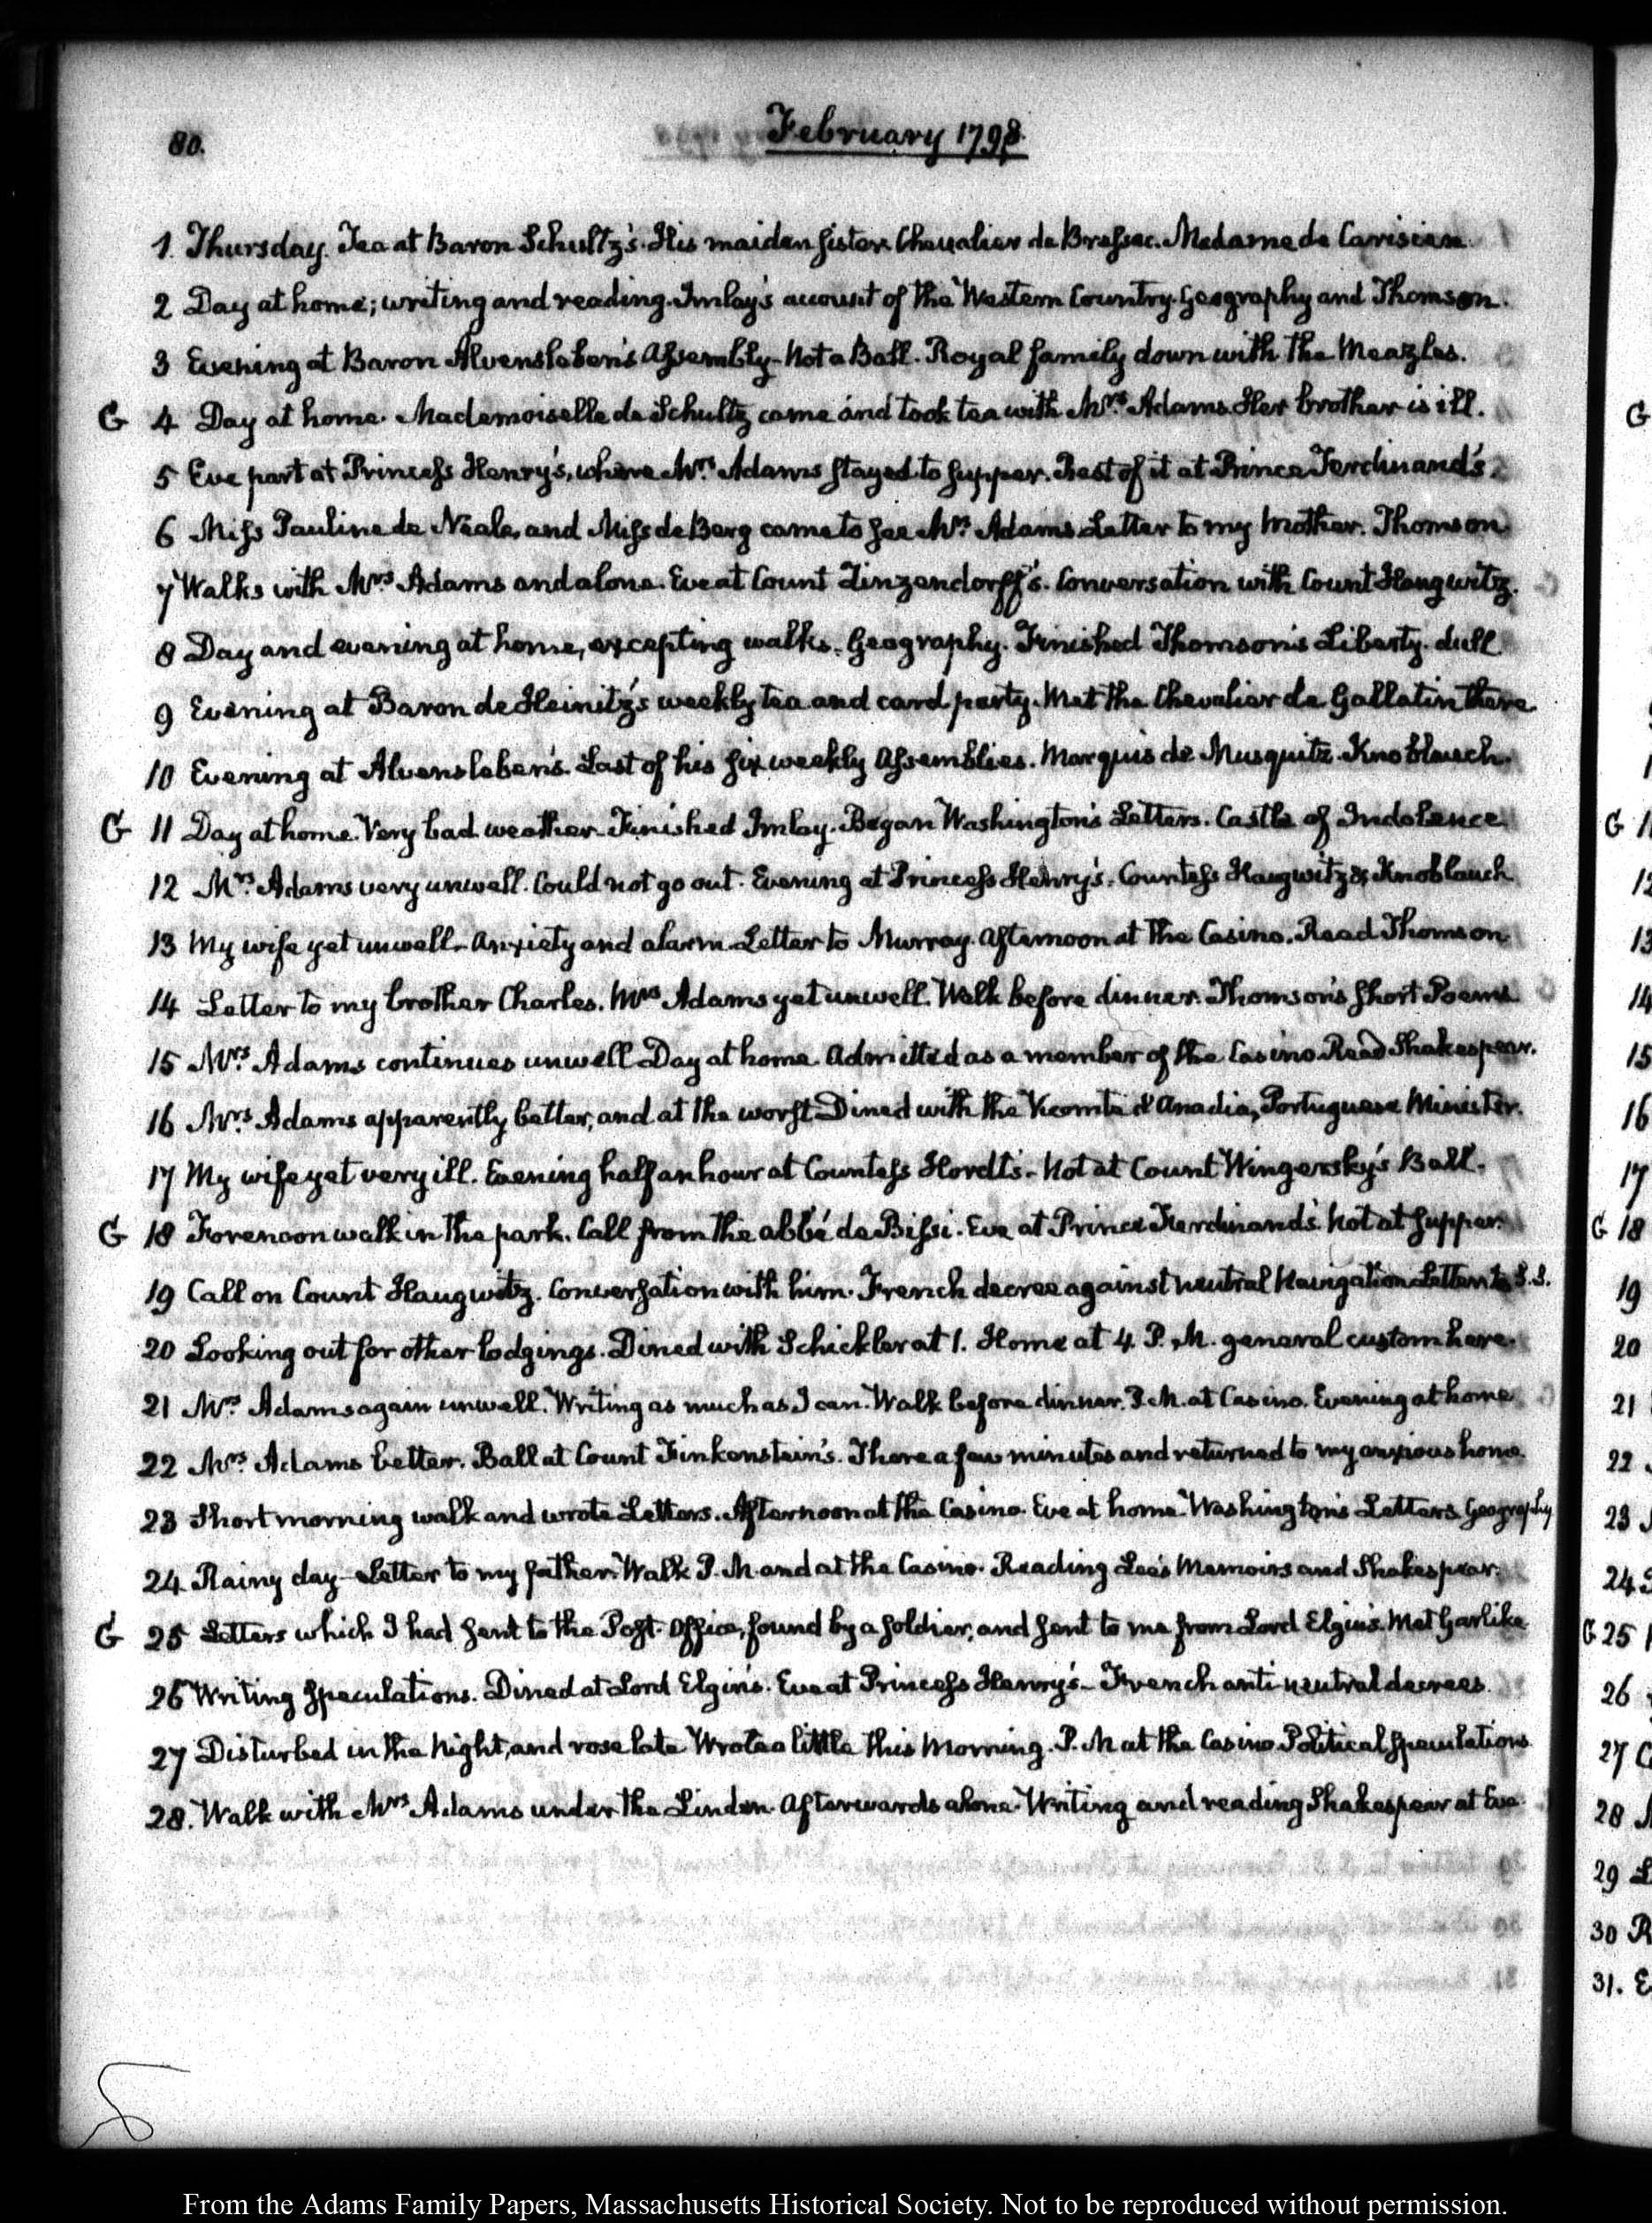 80.
February 1798.
1. Thursday. Tea at Baron Schultz's. His maiden sister. Chevalier de Brassac. Madame de Carisien.
2 Day at home; writing and reading. Imlay's account of the Western Country. Geography and Thomson.
3 Evening at Baron Alvensleben's Assembly. Not a Ball. Royal family down with the Meazles.
G 4 Day at home. Mademoiselle de Schultz came and took tea with Mrs. Adams. Her brother is ill.
5 Eve part at Princess Henry's, where Mrs. Adams stayed to supper. Rest of it at Prince Ferdinand's.
6 Miss Pauline de Neale, and Miss de Berg came to see Mrs. Adams. Letter to my Mother. Thomson.
7 Walks with Mrs. Adams and alone. Eve at Count Zinzendorff's. Conversation with Count Haugwitz.
8 Day and evening at home, excepting walks. Geography. Finished Thomson's Liberty. dull.
9 Evening at Baron de Heinitz's weekly tea and card party. Met the Chevalier de Gallatin there
10 Evening at Alvensleben's. Last of his six weekly Assemblies. Marquis de Musquitz. Knoblauch.
G 11 Day at home. Very bad weather. Finished Imlay. Began Washington's Letters. Castle of Indolence.
12 Mrs. Adams very unwell. Could not go out. Evening at Princess Henry's. Countess Haugwitz & Knoblauch
13 My wife yet unwell. Anxiety and alarm. Letter to Murray. Afternoon at the Casino. Read Thomson
14 Letter to my brother Charles. Mrs Adams yet unwell. Walk before dinner. Thomson's short Poems
15 Mrs. Adams continues unwell. Day at home. Admitted as a member of the Casino. Read Shakespear.
16 Mrs. Adams apparently better, and at the worst. Dined with the Vicomte d'Anadia, Portuguese Minister.
17 My wife yet very ill. Evening half an hour at Countess Hordt's. Not at Count Wingersky's Ball.
G 18 Forenoon walk in the park. Call from the abbé de Bissi. Eve at Prince Ferdinand's. Not at supper.
19 Call on Count Haugwitz. Conversation with him. French decree against neutral Navigation. Letter to S.S.
20 Looking out for other lodgings. Dined with Schickler at 1. Home at 4. P. M. general custom here.
21 Mrs. Adams again unwell. Writing as much as I can. Walk before dinner. P. M. at Casino. Evening at home
22 Mrs. Adams better. Ball at Count Finkenstein's. There a few minutes and returned to my anxious home.
23 Short morning walk and wrote Letters. Afternoon at the Casino. Eve at home. Washington's Letters. Geography
24. Rainy day. Letter to my father. Walk P. M. and at the Casino. Reading Lee's Memoirs and Shakespear.
G 25 Letters which I had sent to the Post-Office, found by a soldier, and sent to me from Lord Elgin's. Met Garlike
26 Writing speculations. Dined at Lord Elgin's. Eve at Princess Henry's. French anti-neutral decrees.
27 Disturbed in the Night, and rose late. Wrote a little this Morning. P. M at the Casino. Political speculations
28. Walk with Mrs Adams under the Linden. Afterwards alone. Writing and reading Shakespear at Eve.
From the Adams Family Papers, Massachusetts Historical Society. Not to be reproduced without permission.